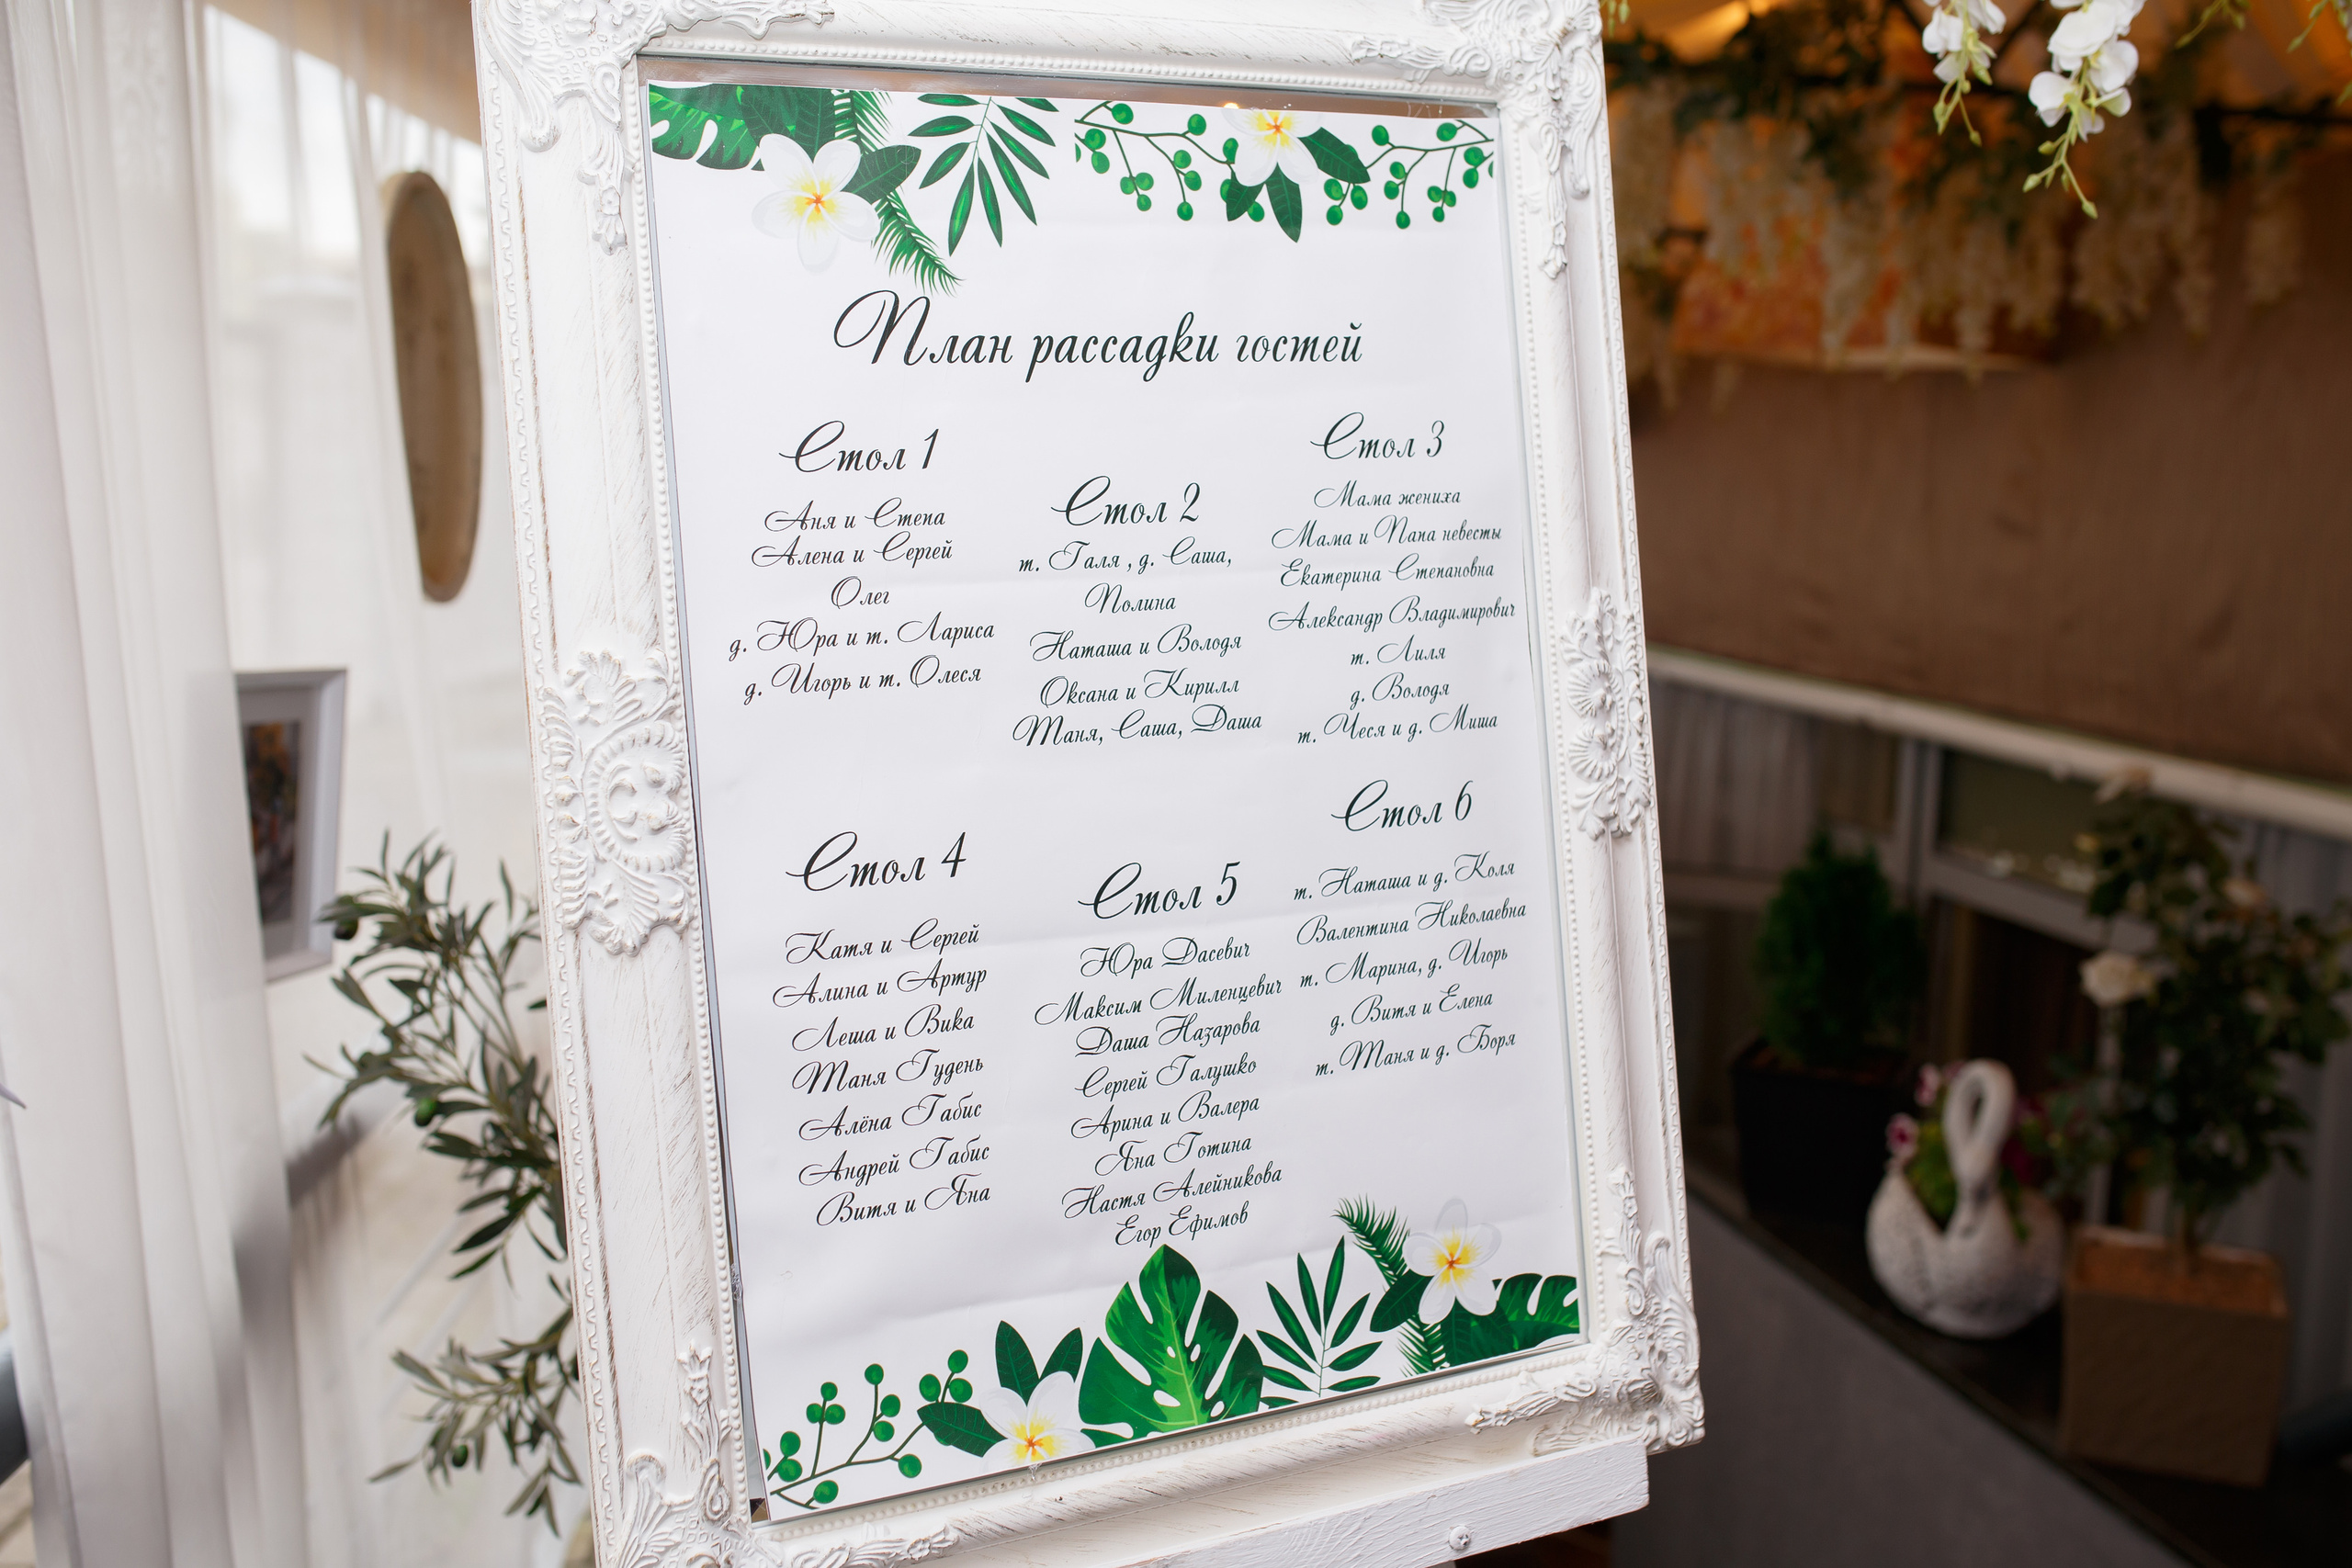 План рассадки гостей
Стол 1
Аня и Степа
Алена и Сергей
Олег
д. Юра и т. Лариса
д. Игорь и т. Олеся
Стол 2
т. Галя , д. Саша,
Полина
Наташа и Володя
Оксана и Кирилл
Таня, Саша, Даша
Стол 3
Мама жениха
Мама и Папа невесты
Екатерина Степановна
Александр Владимирович
т. Лиля
д. Володя
т. Чеся и д. Миша
Стол 4
Катя и Сергей
Алина и Артур
Леша и Вика
Таня Гудень
Алёна Габис
Андрей Габис
Витя и Яна
Стол 5
Юра Дасевич
Максим Миленцевич
Даша Назарова
Сергей Галушко
Арина и Валера
Яна Готина
Настя Алейникова
Егор Ефимов
Стол 6
т. Наташа и д. Коля
Валентина Николаевна
т. Марина, д. Игорь
д. Витя и Елена
т. Таня и д. Боря